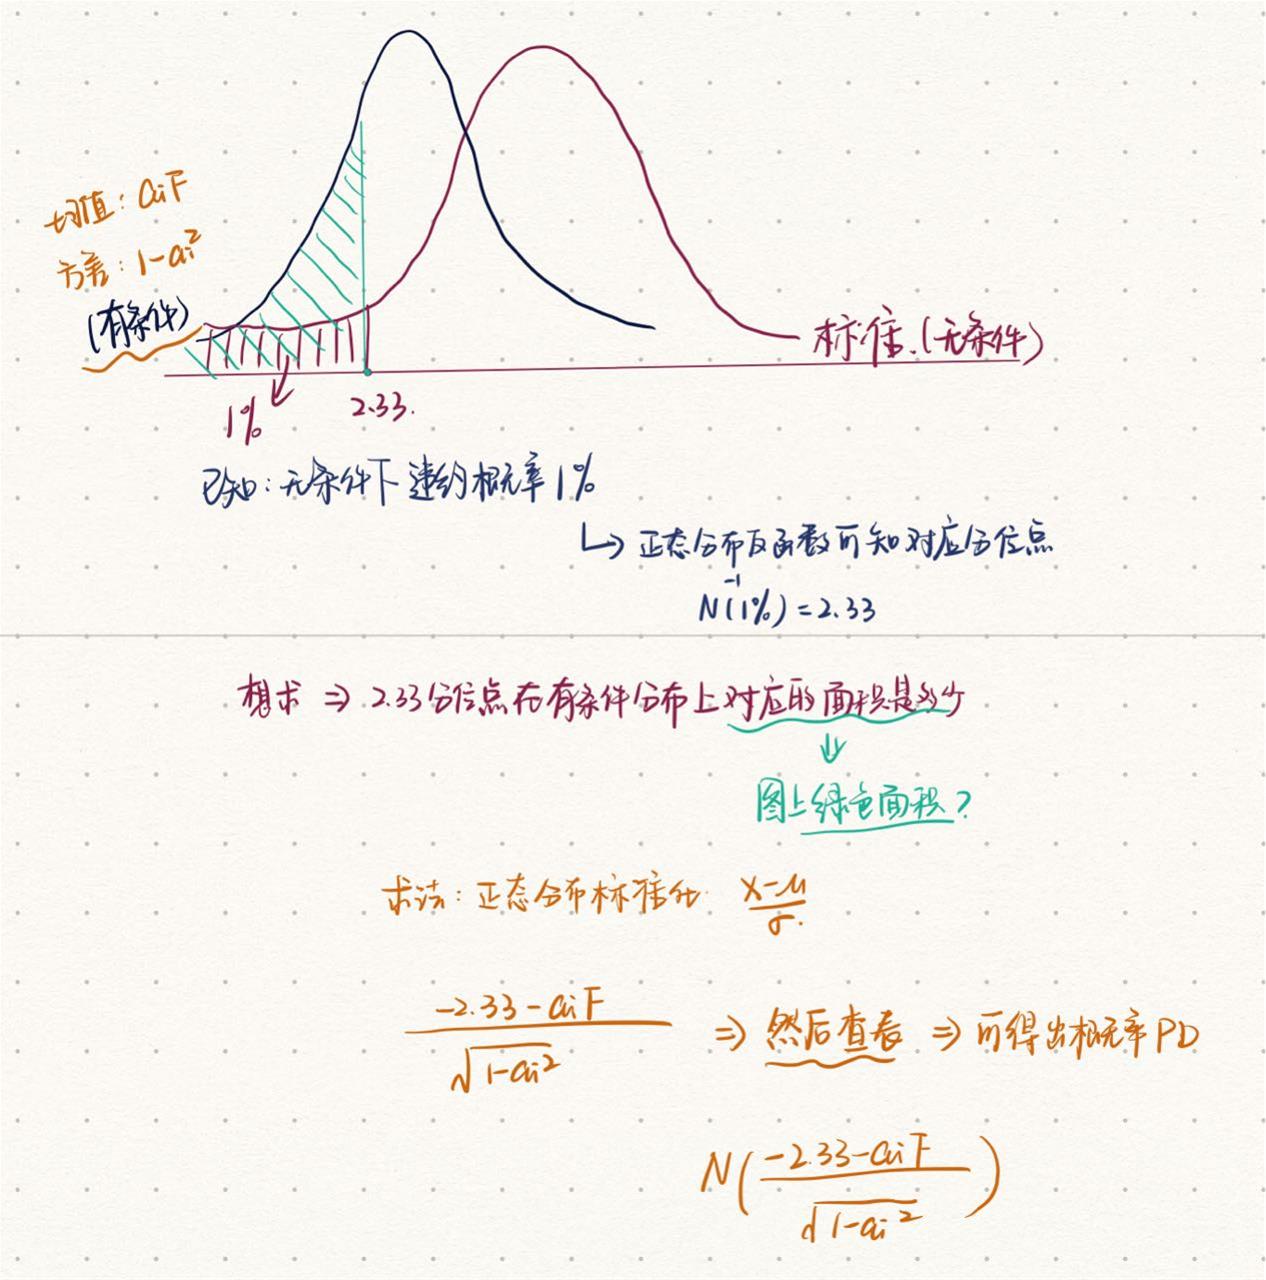 均值：aiF
方差：1-ai²
(有条件)
标准.(无条件)
1%
2.33.
已知：无条件下违约概率1%
↳ 正态分布反函数可知对应分位点
N⁻¹(1%)=2.33
想求 ⇒ 2.33分位点在有条件分布上对应的面积是多少
↓
图上绿色面积?
求法：正态分布标准化 (x-μ)/σ.
(-2.33-aiF)/√(1-ai²) ⇒ 然后查表 ⇒ 可得出概率PD
N((-2.33-aiF)/√(1-ai²))